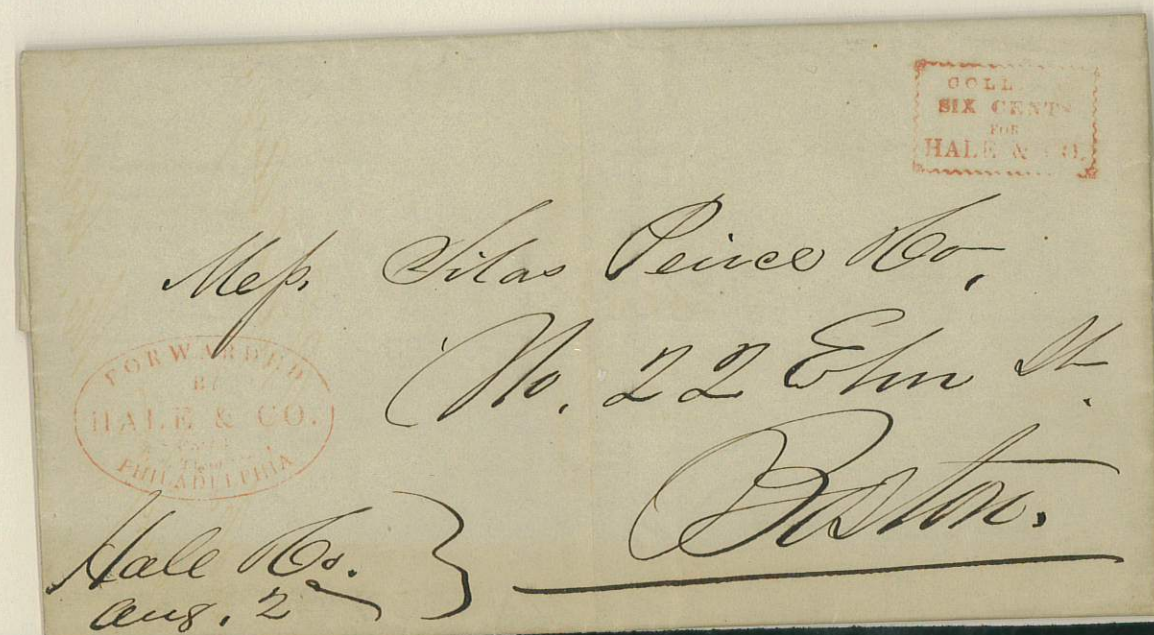 COLL
SIX CENTS
FOR
HALE & CO.
Mess. Silas Peirce & Co,
No. 22 Elm St.
Boston.
FORWARDED
BY
HALE & CO.
PHILADELPHIA
Hale & Co.
Aug. 2